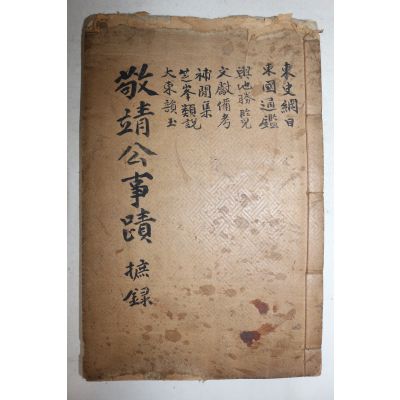 東史綱目
東國通鑑
輿地勝覽
文獻備考
補閑集
芝峯類說
大東韻玉
敬靖公事蹟 摭錄